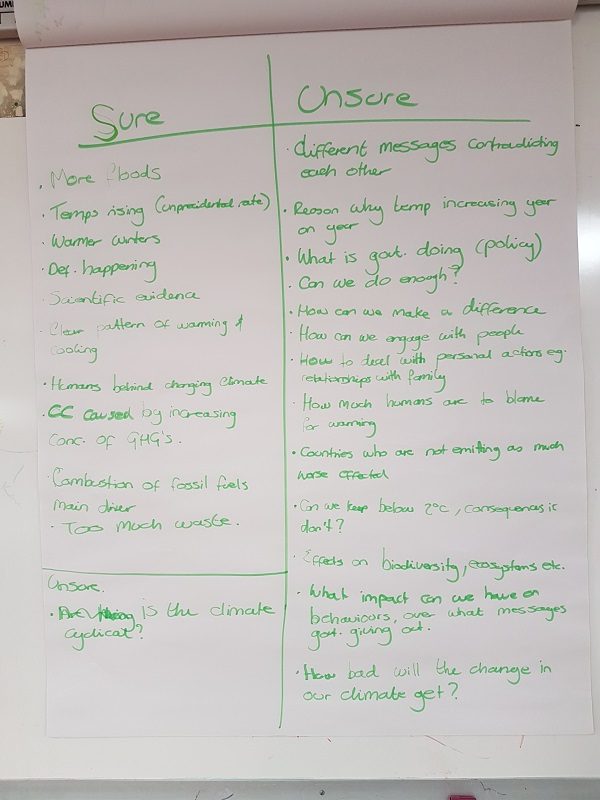 Sure
· More floods
· Temps rising (unprecidented rate)
· Warmer winters
· Def. happening
· Scientific evidence
· Clear pattern of warming &
cooling
· Humans behind changing climate
· CC caused by increasing
Conc. of GHG's.
· Combustion of fossil fuels
main driver
· Too much waste.
Unsure.
· is the climate
cyclical?
Unsure
· different messages contradicting
each other
· Reason why temp increasing year
on year
· What is govt. doing (policy)
· Can we do enough?
· How can we make a difference
· How can we engage with people
· How to deal with personal actions eg.
relationships with family
· How much humans are to blame
for warming
· Countries who are not emitting as much
worse effected
· Can we keep below 2°C, consequences if
don't?
· Effects on biodiversity, ecosystems etc.
· What impact can we have on
behaviours, over what messages
govt. giving out.
· How bad will the change in
our climate get?